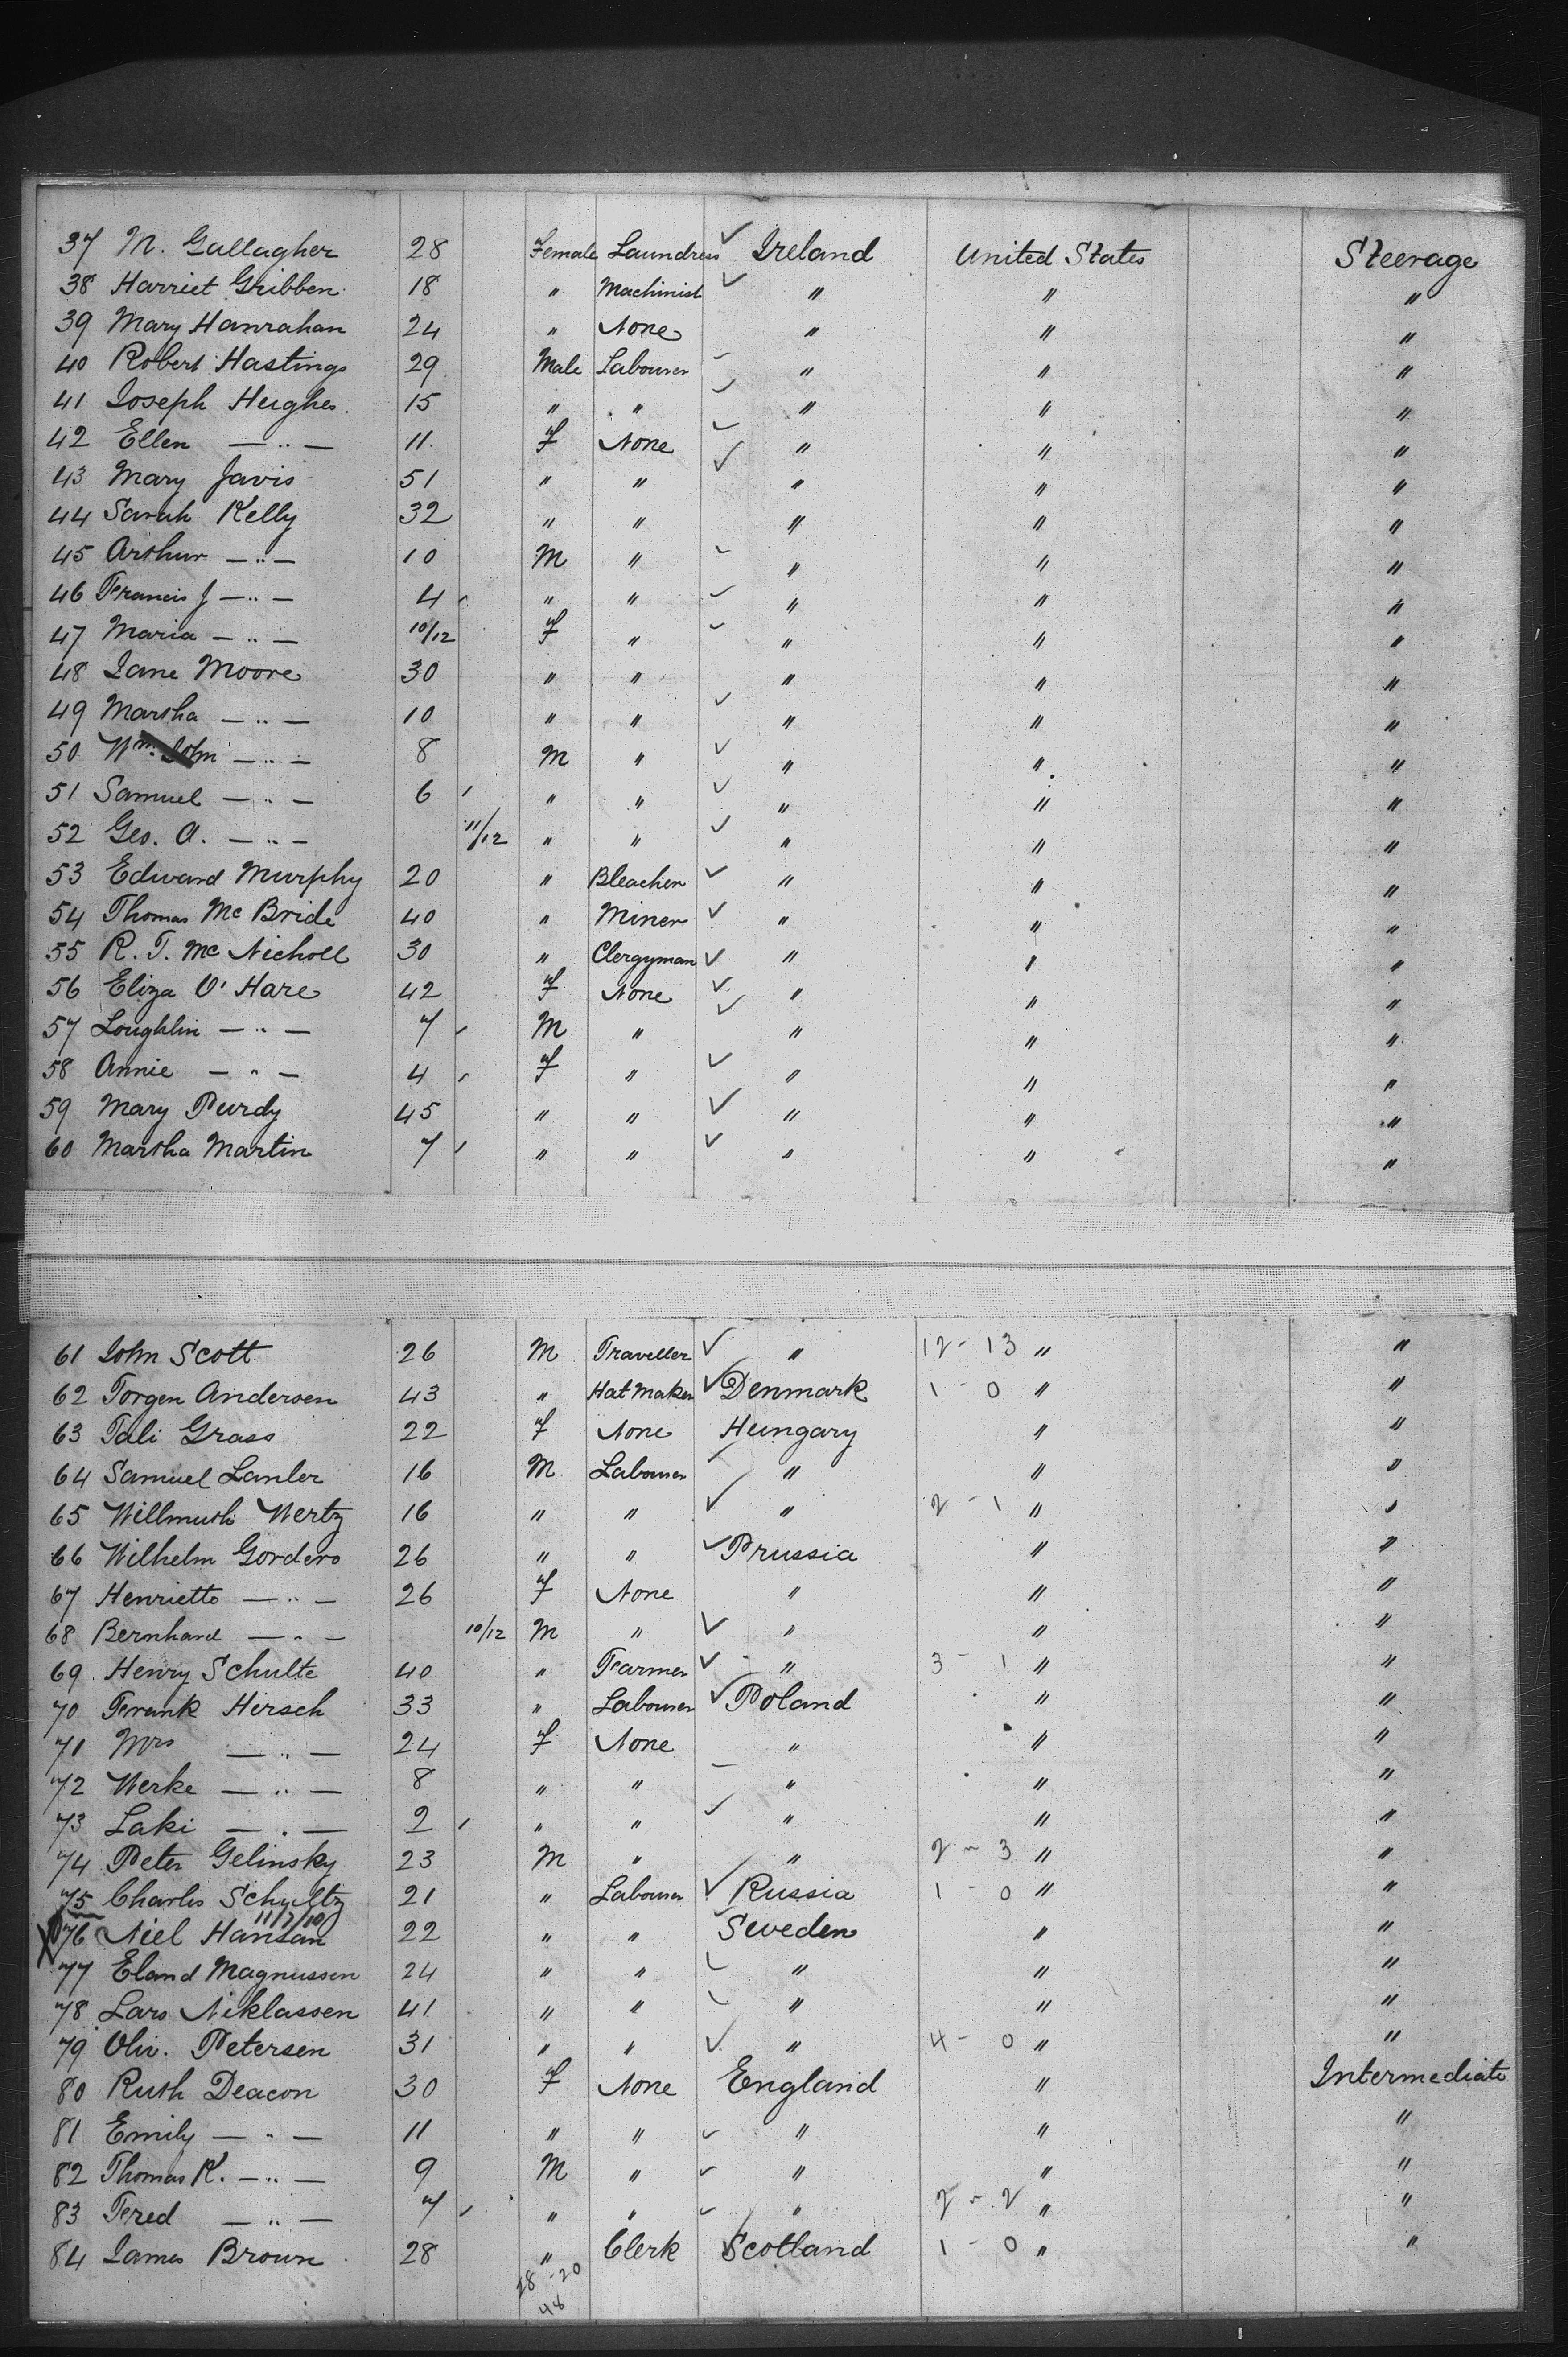 37 M. Gallagher 28 Female Laundress ✓ Ireland United States Steerage
38 Harriet Gribben 18 " Machinist ✓ " " "
39 Mary Hanrahan 24 " None " " "
40 Robert Hastings 29 Male Labourer " " "
41 Joseph Hughes 15 " " " " "
42 Ellen — " — 11 F None " " "
43 Mary Javis 51 " " ✓ " " "
44 Sarah Kelly 32 " " " " "
45 Arthur — " — 10 M " " " "
46 Francis J — " — 4 " " " " "
47 Maria — " — 10/12 F " " " "
48 Jane Moore 30 " " " " "
49 Martha — " — 10 " " ✓ " " "
50 Wm. John — " — 8 M " ✓ " " "
51 Samuel — " — 6 " " ✓ " " "
52 Geo. A. — " — 11/12 " " ✓ " " "
53 Edward Murphy 20 " Bleacher ✓ " " "
54 Thomas Mc Bride 40 " Miner ✓ " " "
55 R. T. Mc Nicholl 30 " Clergyman ✓ " " "
56 Eliza O' Hare 42 F None ✓ " " "
57 Loughlin — " — 7 M " ✓ " " "
58 Annie — " — 4 F " ✓ " " "
59 Mary Purdy 45 " " ✓ " " "
60 Martha Martin 7 " " ✓ " " "
61 John Scott 26 M Traveller ✓ " 12 - 13 " "
62 Torgen Andersen 43 " Hat Maker ✓ Denmark 1 - 0 " "
63 Tali Grass 22 F None Hungary " "
64 Samuel Lanler 16 M Labourer ✓ " " "
65 Willmuth Wertz 16 " " ✓ " 2 - 1 " "
66 Wilhelm Gorders 26 " " ✓ Prussia " "
67 Henriette — " — 26 F None " " "
68 Bernhard — " — 10/12 M " ✓ " " "
69 Henry Schulte 40 " Farmer ✓ " 3 - 1 " "
70 Frank Hirsch 33 " Labourer ✓ Poland " "
71 Mrs — " — 24 F None " " "
72 Werke — " — 8 " " " " "
73 Laki — " — 2 " " ✓ " " "
74 Peter Gelinsky 23 M " " 2 - 3 " "
75 Charles Schultz 21 " Labourer ✓ Russia 1 - 0 " "
11/7/10
X 76 Niel Hansan 22 " " Sweden " "
77 Eland Magnussen 24 " " ✓ " " "
78 Lars Niklassen 41 " " ✓ " " "
79 Oliv. Petersen 31 " " ✓ " 4 - 0 " "
80 Ruth Deacon 30 F None England " Intermediate
81 Emily — " — 11 " " ✓ " " "
82 Thomas K. — " — 9 M " ✓ " " "
83 Fred — " — 7 " " ✓ " 2 - 2 " "
84 James Brown 28 " Clerk ✓ Scotland 1 - 0 " "
28 - 20
48